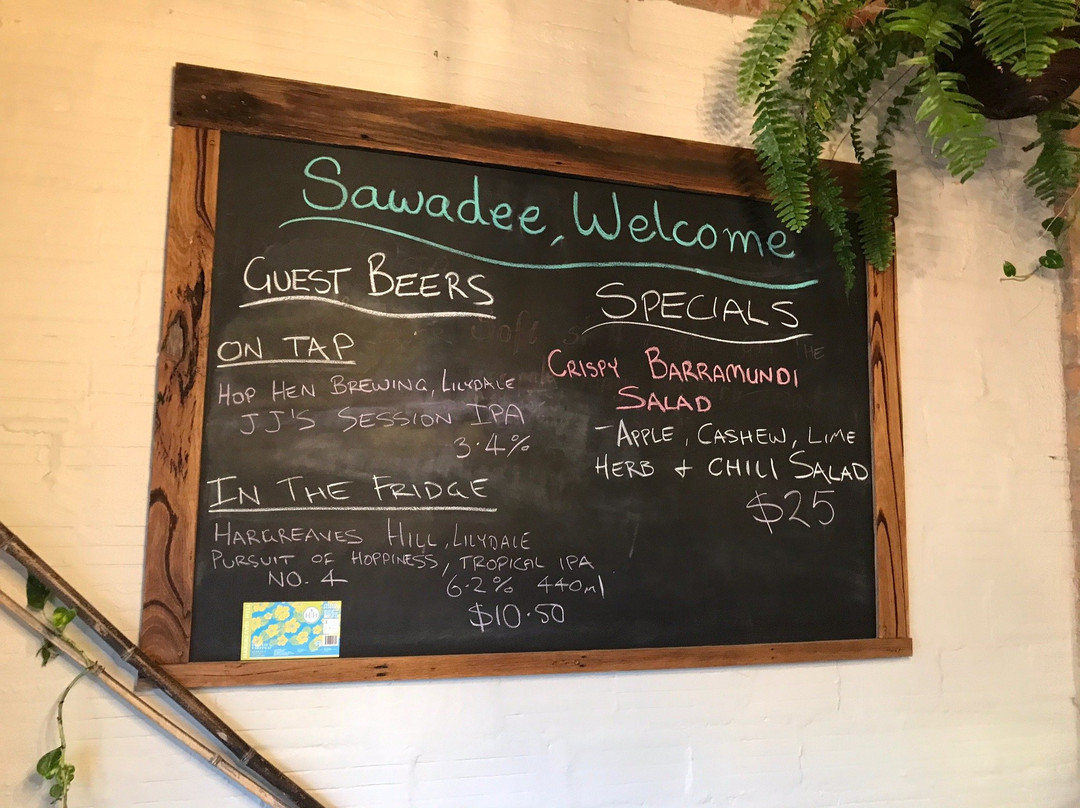 Sawadee, Welcome
GUEST BEERS
ON TAP
HOP HEN BREWING, LILYDALE
JJ'S SESSION IPA
3.4%
IN THE FRIDGE
HARGREAVES HILL, LILYDALE
PURSUIT OF HOPPINESS, TROPICAL IPA
NO. 4
6.2% 440ml
$10.50
SPECIALS
CRISPY BARRAMUNDI
SALAD
- APPLE, CASHEW, LIME
HERB + CHILI SALAD
$25